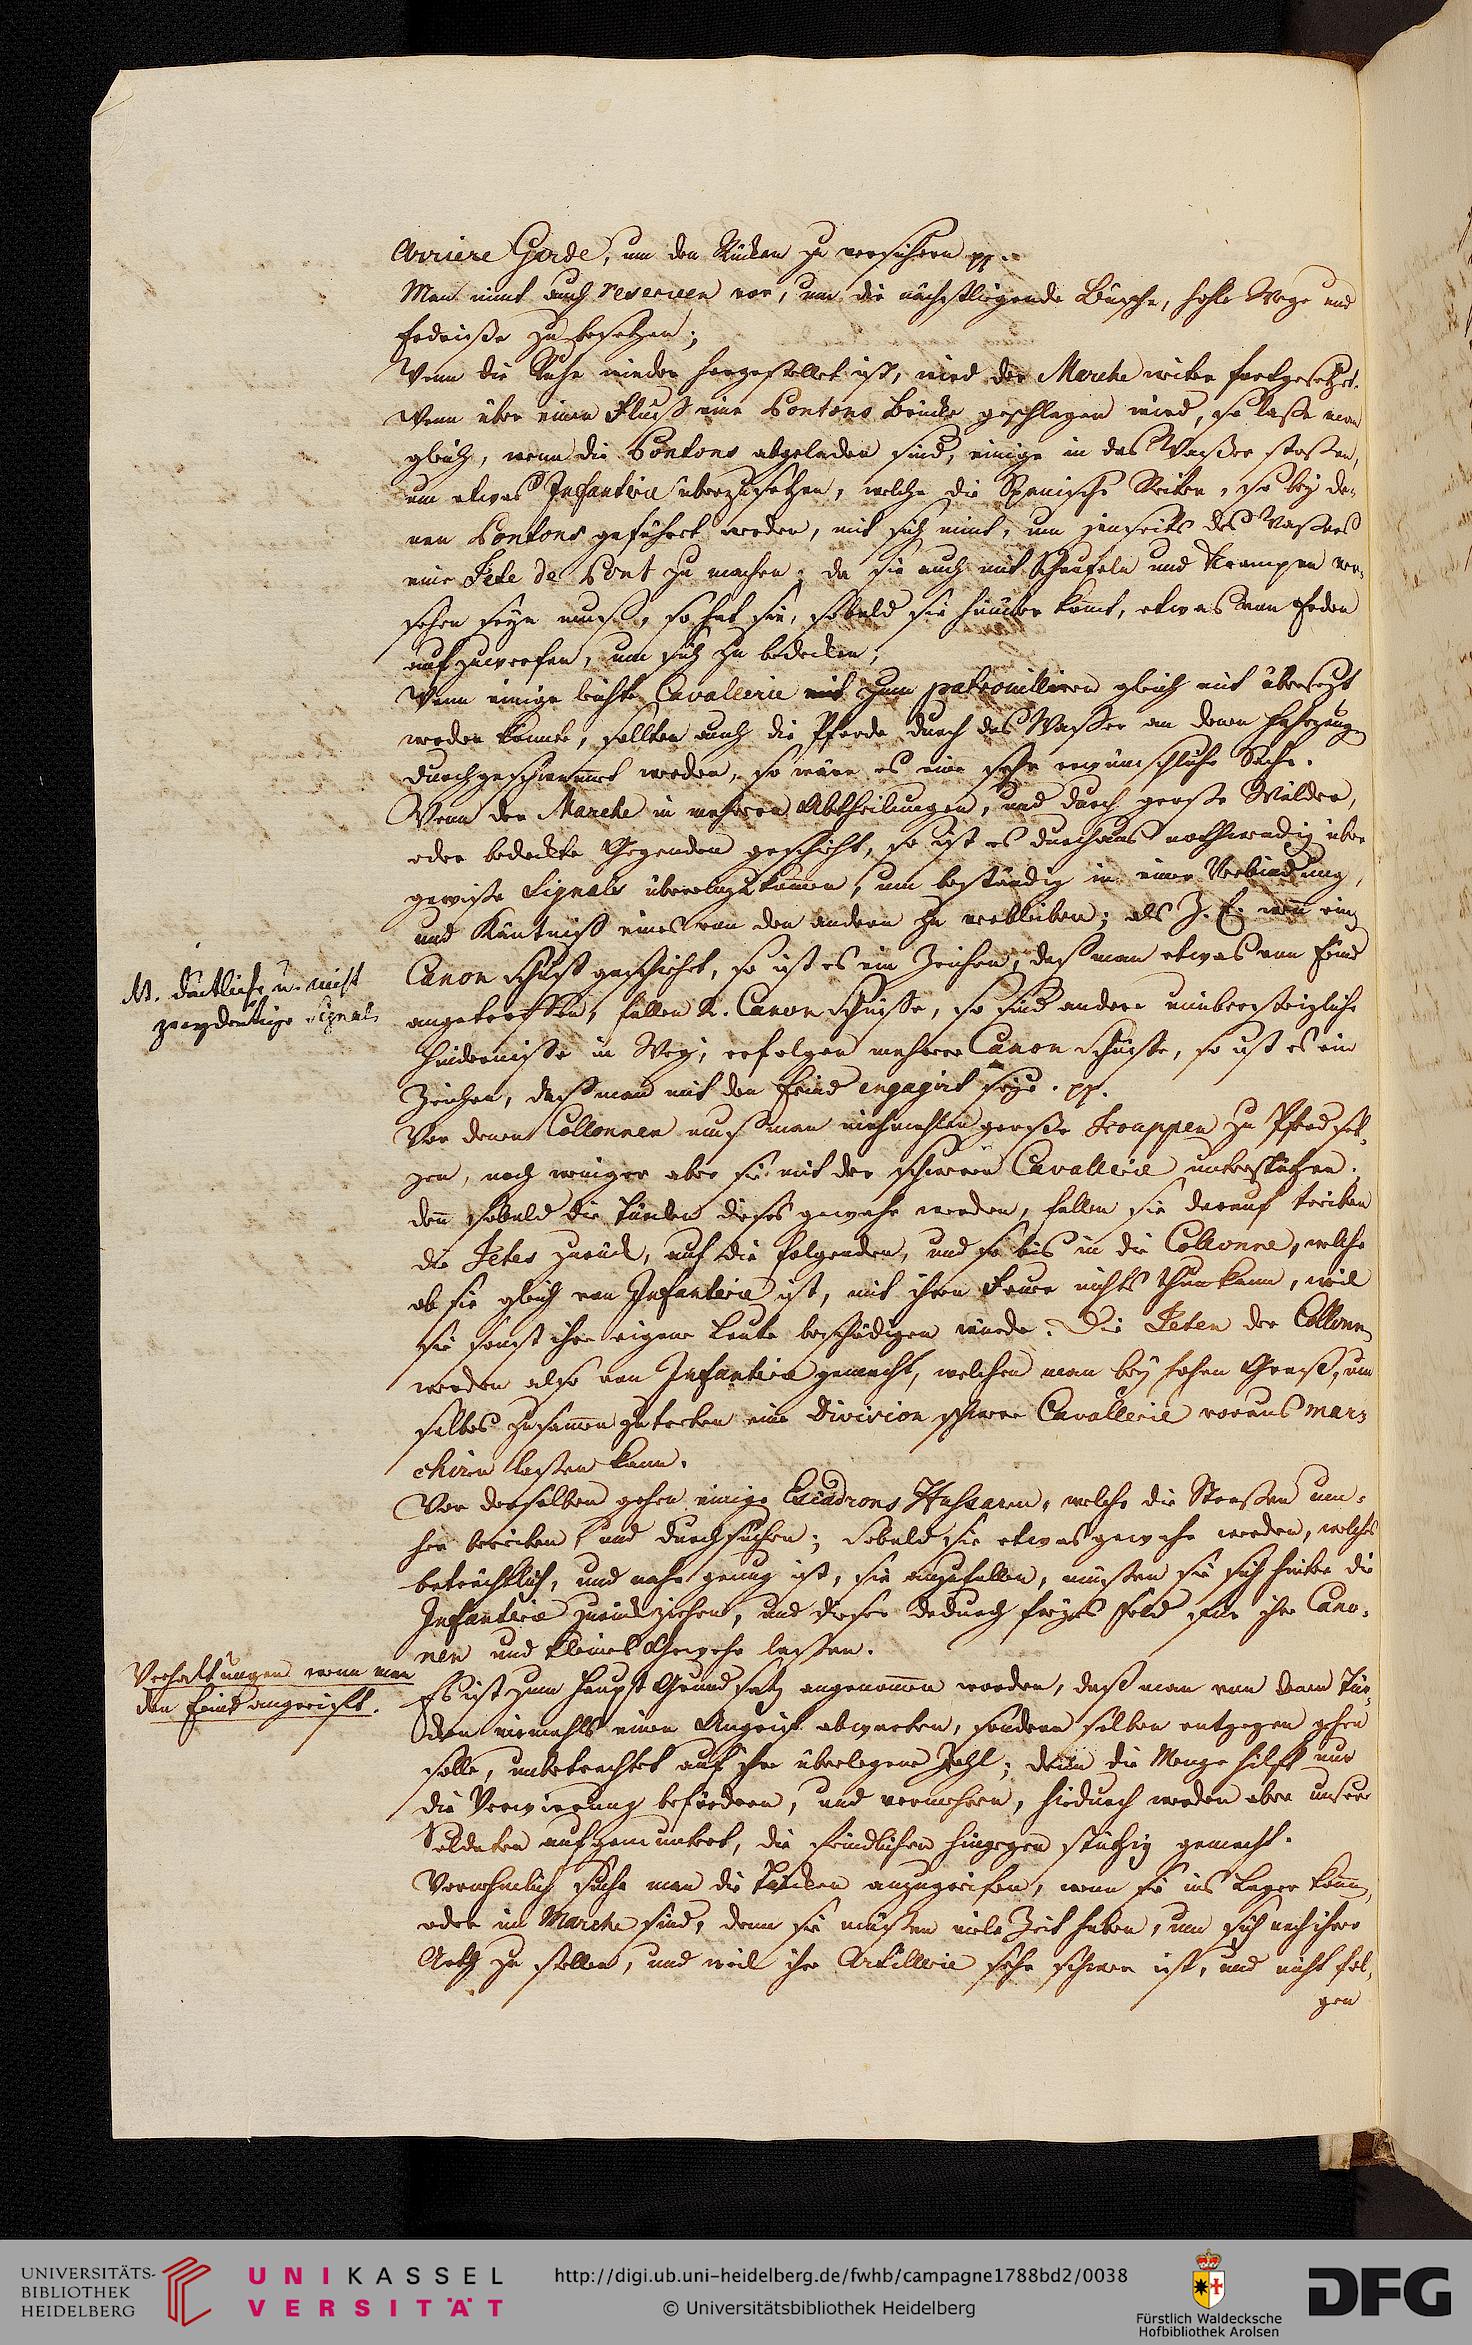 Arriere Garde, um den Rücken zu versichern pp.
Man nimt auch reserven vor, um die nächstliegende Büsche, hohle Wege und
zu besetzen;
Wenn die Ruhe wieder hergestellet ist, wird der Marche weiter fortgesetzet.
Wenn über einen Fluß eine Pontons Brücke geschlagen wird, so laße man
gleich, wenn die Pontons abgeladen sind, einige in das Waßer stoßen,
um etwas Infanterie überzusetzen, welche die Spanische Reiter, so bey de-
nen Pontons geführet werden, mit sich nimt, um jenseits des Waßers
eine Tete de Pont zu machen; da sie auch mit Schaufeln und Krampen ver-
sehen seyn muß, so hat sie, sobald sie hinüber komt, etwas von Erden
aufzuwerfen, um sich zu bedecken;
Wenn einige leichte Cavallerie mit zum patrouilliren gleich mit übersezt
werden könnte, sollten auch die Pferde durch das Waßer an denen Fahrzeug
durchgeschwemmt werden, so wäre es eine sehr erwünschliche Sache.
Wenn der Marche in mehrere Abtheilungen, und durch große Wälder,
oder bedeckte Gegenden geschieht, so ist es durchaus nothwendig über
gewiße Signals übereinzukommen, um beständig in einer Verbindung,
und Käntniß eines von den andern zu verbleiben; als Z. E. wenn ein
Canon Schuß geschiehet, so ist es ein Zeichen, daß man etwas vom Feind
angetroffen, fallen 2. Canon Schüße, so sind andere unübersteigliche
Hinderniße im Weg; erfolgen mehrere Canon Schüße, so ist es ein
Zeichen, daß man mit dem Feind engagirt seye. pp.
NB. deutliche u. nicht
zweydeutige Signals
Vor denen Collonnen muß man niehmahlen große Trouppen zu Pferd set-
zen, noch weniger aber sie mit der schweren Cavallerie unterstützen.
den sobald die Türken dieses gewahr werden, fallen sie darauf treiben
die Tetes zurück, auf die folgenden, und so bis in die Collonne, welche
ob sie gleich von Infanterie ist, mit ihren Feuer nichts thun kann, weil
sie sonst ihre eigene Leute beschädigen würde. Die Teten der Collonn
werden also von Infanterie gemacht, welchen man bey hohen Graß, um
selbes zusamen zu tretten eine Division schwere Cavallerie voraus mar-
chiren laßen kann.
Vor derselben gehen einige Escadrons Hussaren, welche die Straßen um-
her bereiten und durchsuchen; sobald sie etwas gewahr werden, welches
beträchtlich, und nahe genug ist, sie anzufallen, müßen sie sich hinter die
Infanterie zurückziehen, und dieser dadurch freyes Feld für ihre Cano-
nen und kleines Gewehr laßen.
Verhaltungen wenn man
den Feind angreift.
Es ist zum Haupt Grund satz angenommen worden, daß man von denen Tür-
cken niemahls einen Angrif abwarten, sondern selben entgegen gehen
solle, unbetrachtet auf ihre überlegene Zahl; denn die Menge hilft nur
die Verwirrung befördern, und vermehren, hiedurch werden aber unsere
Soldaten aufgemuntert, die feindlichen hingegen stutzig gemacht.
Vornehmlich suche man die Türken anzugreifen, wenn sie ins Lager komm,
oder im Marche sind, denn sie müßen viele Zeit haben, um sich nach ihrer
Arth zu stellen, und weil ihre Artillerie sehr schwer ist, und nicht fol-
gen
UNIVERSITÄTS-
BIBLIOTHEK
HEIDELBERG
UNIKASSEL
VERSITÄT
http://digi.ub.uni-heidelberg.de/fwhb/campagne1788bd2/0038
© Universitätsbibliothek Heidelberg
Fürstlich Waldecksche
Hofbibliothek Arolsen
DFG